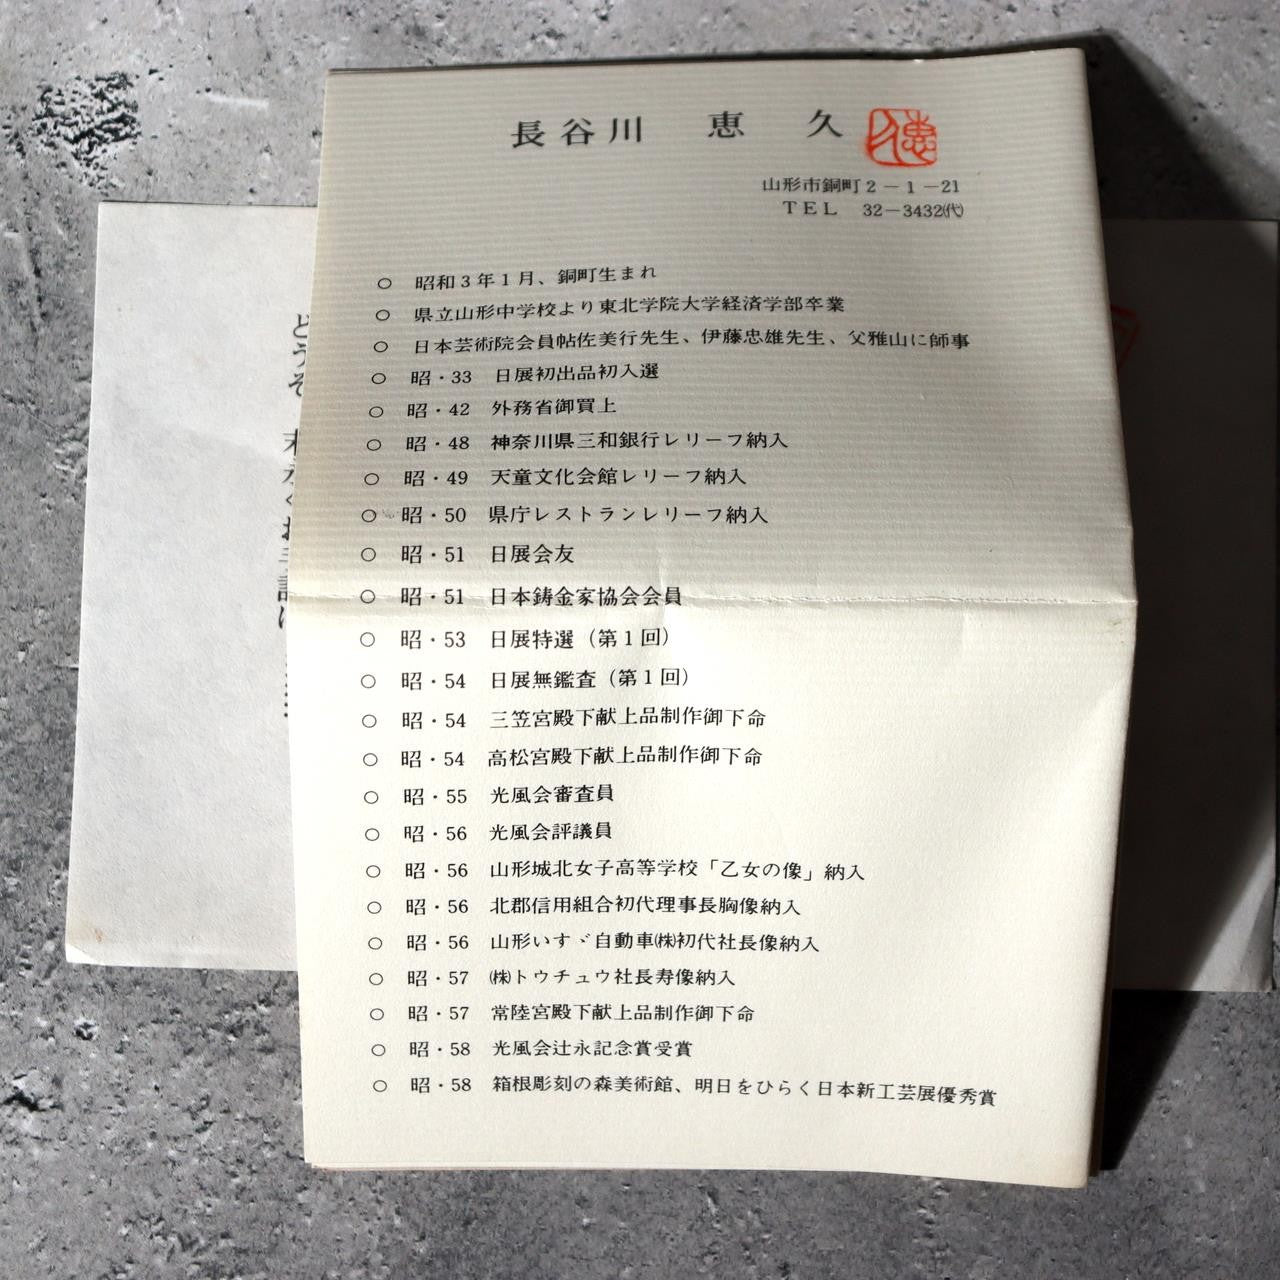 長谷川 恵久
山形市銅町2-1-21
TEL 32-3432㈹
○ 昭和3年1月、銅町生まれ
○ 県立山形中学校より東北学院大学経済学部卒業
○ 日本芸術院会員帖佐美行先生、伊藤忠雄先生、父雅山に師事
○ 昭・33 日展初出品初入選
○ 昭・42 外務省御買上
○ 昭・48 神奈川県三和銀行レリーフ納入
○ 昭・49 天童文化会館レリーフ納入
○ 昭・50 県庁レストランレリーフ納入
○ 昭・51 日展会友
○ 昭・51 日本鋳金家協会会員
○ 昭・53 日展特選(第1回)
○ 昭・54 日展無鑑査(第1回)
○ 昭・54 三笠宮殿下献上品制作御下命
○ 昭・54 高松宮殿下献上品制作御下命
○ 昭・55 光風会審査員
○ 昭・56 光風会評議員
○ 昭・56 山形城北女子高等学校「乙女の像」納入
○ 昭・56 北郡信用組合初代理事長胸像納入
○ 昭・56 山形いすゞ自動車㈱初代社長像納入
○ 昭・57 ㈱トウチュウ社長寿像納入
○ 昭・57 常陸宮殿下献上品制作御下命
○ 昭・58 光風会辻永記念賞受賞
○ 昭・58 箱根彫刻の森美術館、明日をひらく日本新工芸展優秀賞
どうぞ 末永くお